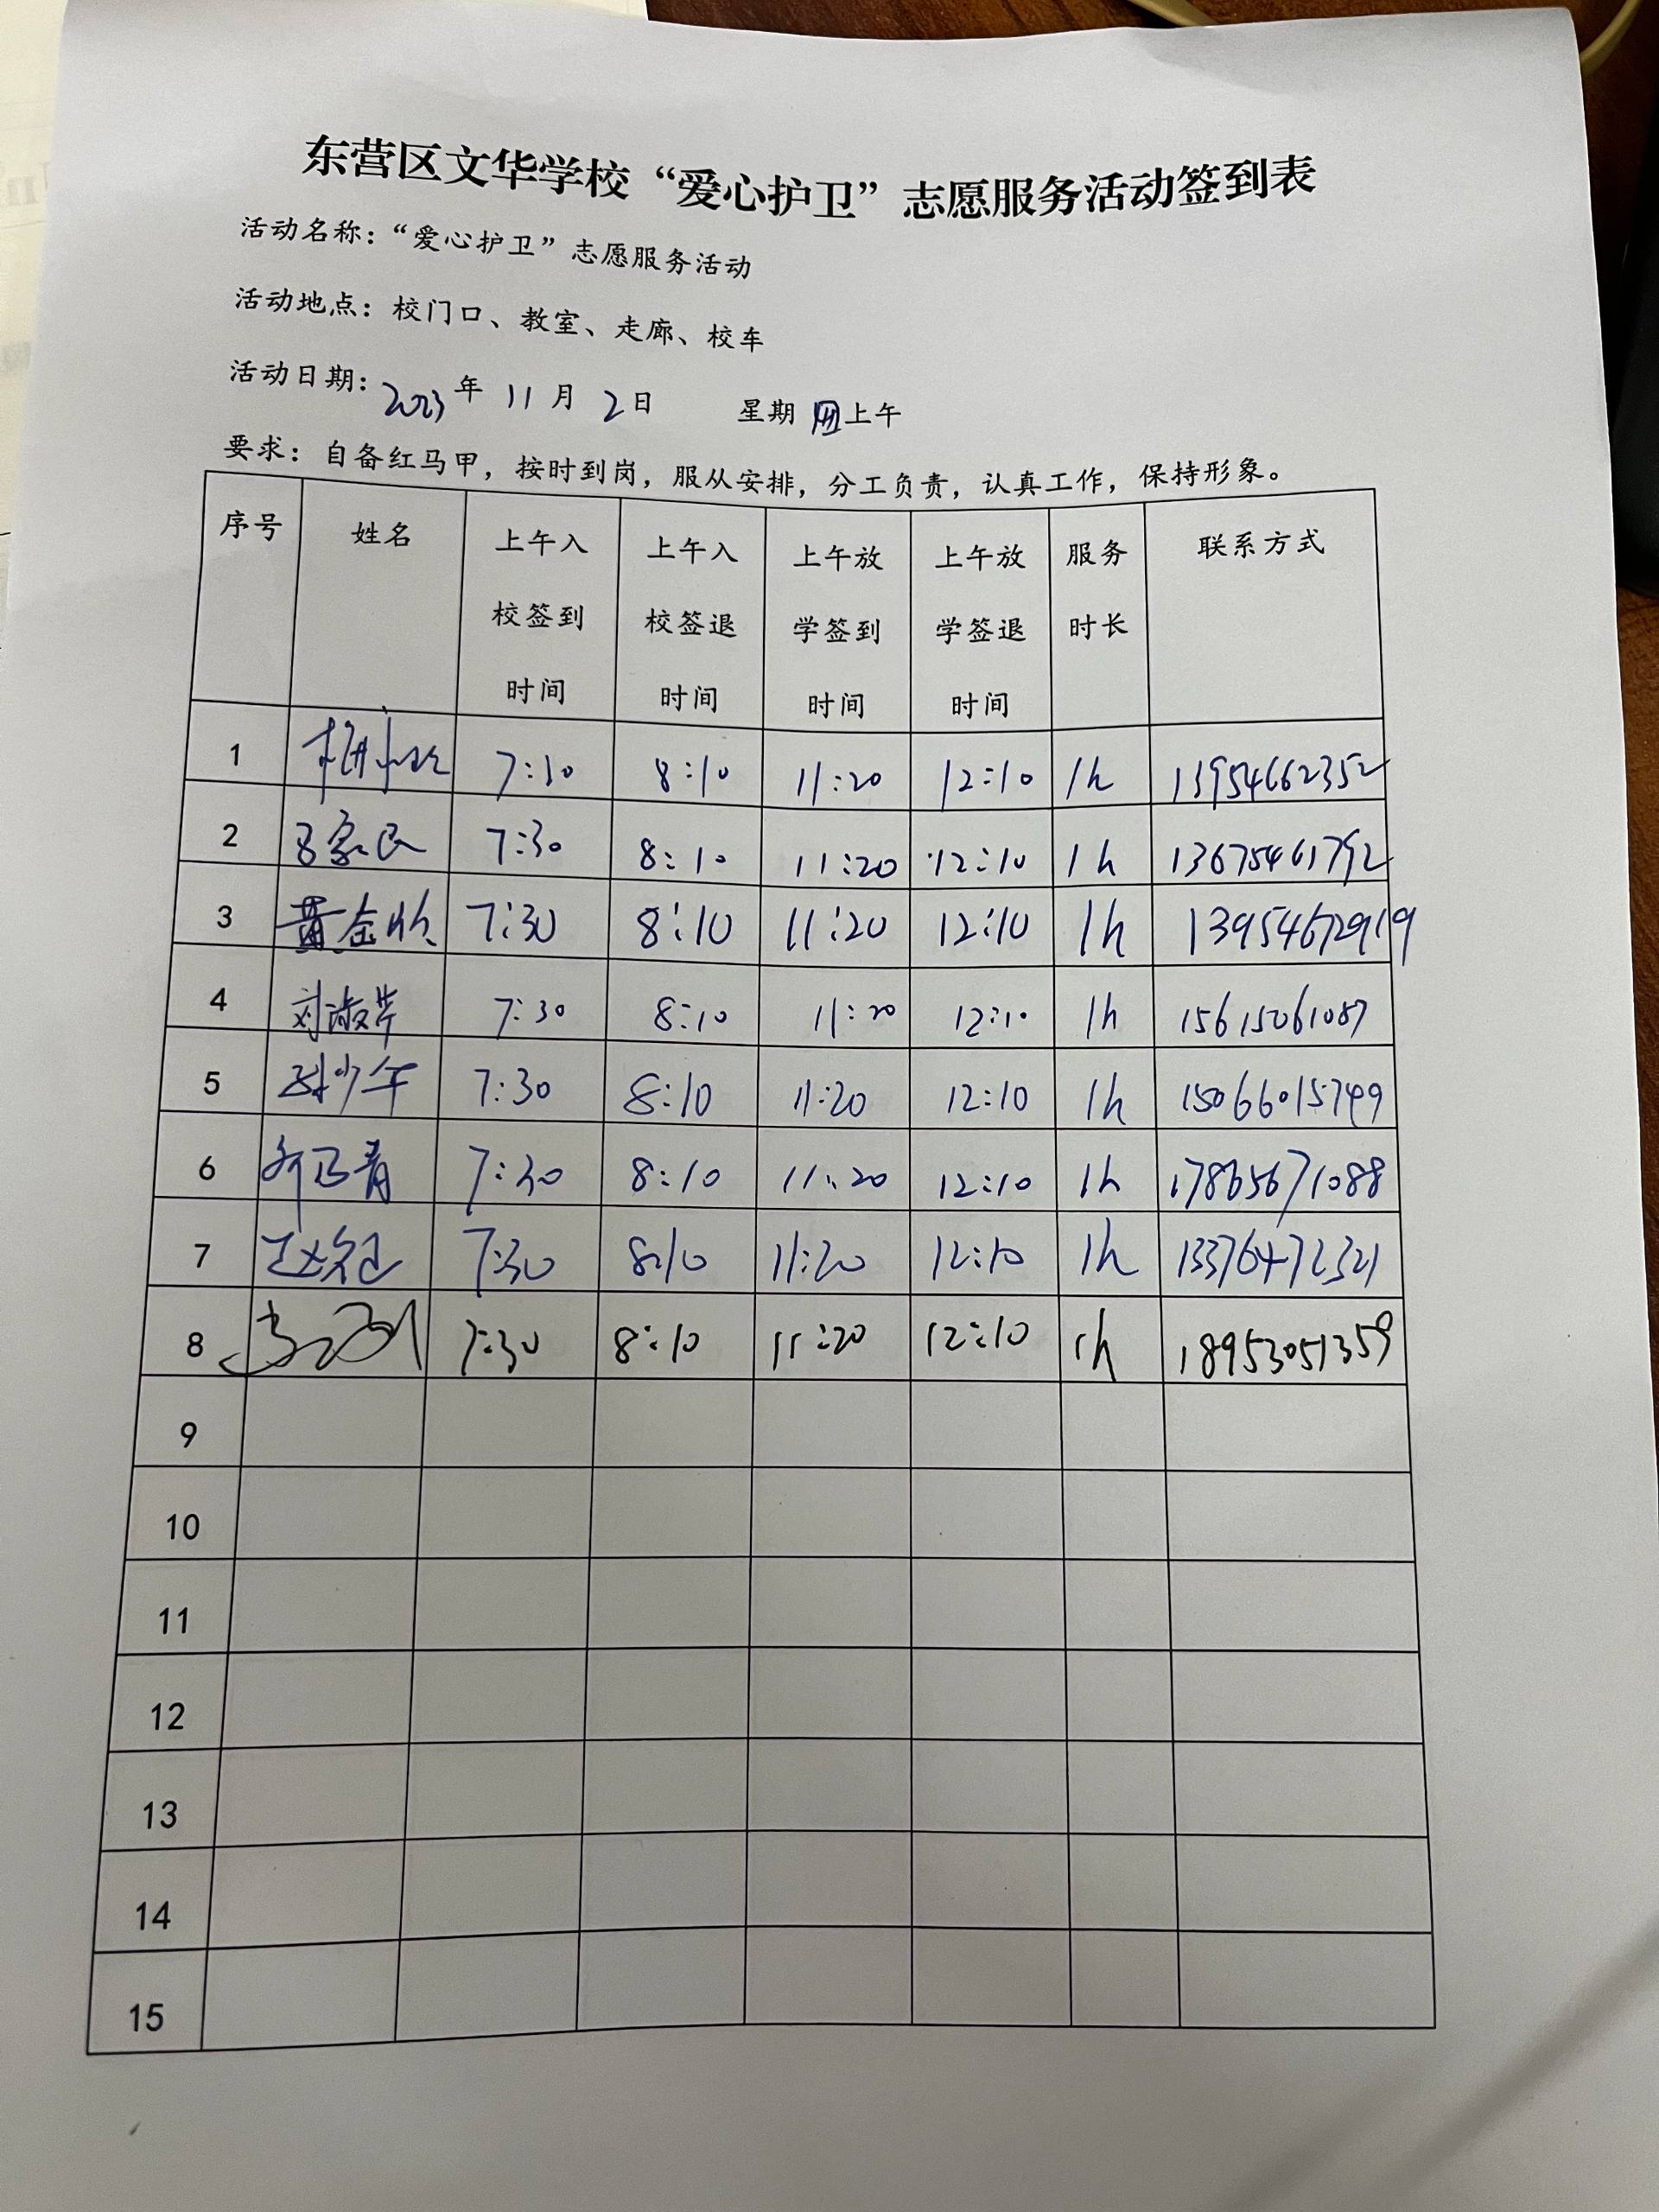 东营区文华学校“爱心护卫”志愿服务活动签到表
活动名称：“爱心护卫”志愿服务活动
活动地点：校门口、教室、走廊、校车
活动日期：2023年 11月 2日 星期四上午
要求：自备红马甲，按时到岗，服从安排，分工负责，认真工作，保持形象。
序号 姓名 上午入校签到时间 上午入校签退时间 上午放学签到时间 上午放学签退时间 服务时长 联系方式
1 7:30 8:10 11:20 12:10 1h 13954662352
2 7:30 8:10 11:20 12:10 1h 13675461792
3 黄金欣 7:30 8:10 11:20 12:10 1h 13954672919
4 刘淑芹 7:30 8:10 11:20 12:10 1h 15615061087
5 7:30 8:10 11:20 12:10 1h 15066015749
6 7:30 8:10 11:20 12:10 1h 17865671088
7 7:30 8:10 11:20 12:10 1h 13376472321
8 7:30 8:10 11:20 12:10 1h 18953051359
9
10
11
12
13
14
15